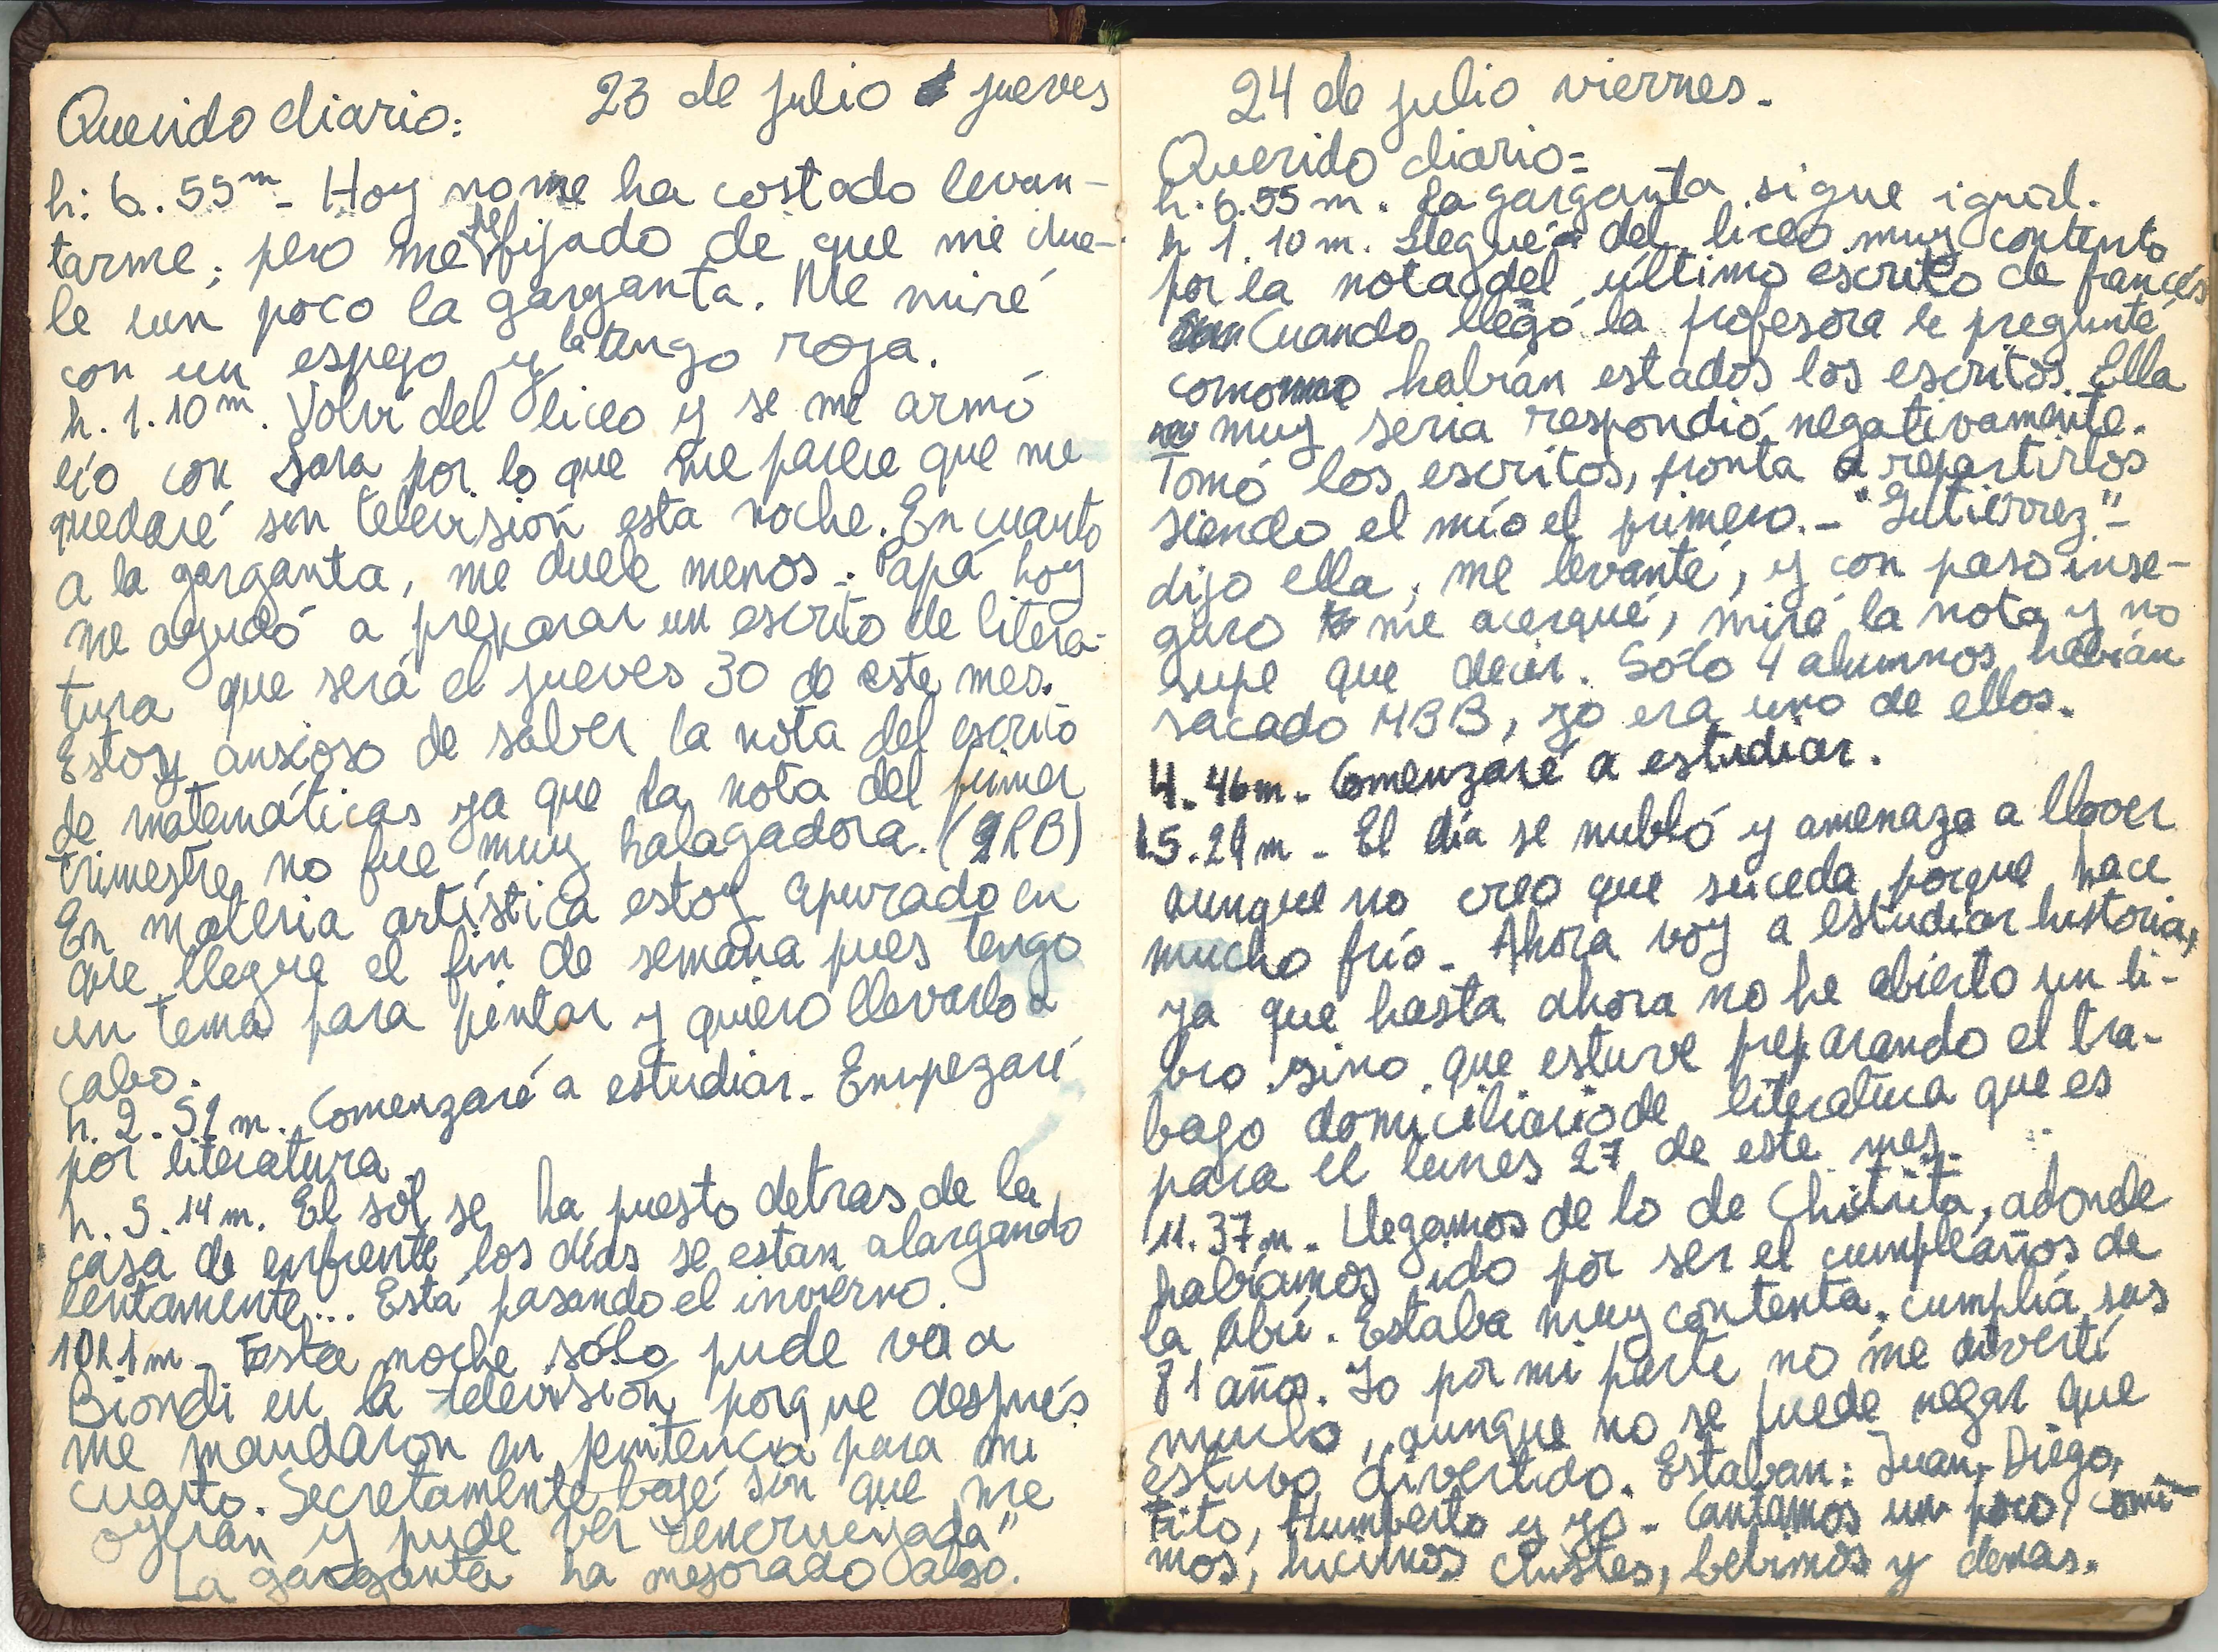 23 de julio jueves
Querido diario:
h: 6..55m - Hoy no me ha costado levan-
tarme; pero me he fijado de que me due-
le un poco la garganta. Me miré
con un espejo y la tengo roja.
h. 1.10m. Volví del liceo y se me armó
lío con Sara por lo que me parece que me
quedaré sin televisión esta noche. En cuanto
a la garganta, me duele menos.- Papá hoy
me ayudó a preparar un escrito de litera-
tura que será el jueves 30 de este mes.
Estoy ansioso de saber la nota del escrito
de matemáticas ya que la nota del primer
trimestre no fue muy halagadora. (RB)
En materia artística estoy apurado en
que llegue el fin de semana pues tengo
un tema para pintar y quiero llevarlo a
cabo.
h. 2. 51 m. Comenzaré a estudiar. Empezaré
por literatura.
h. 5. 14 m. El sol se ha puesto detras de la
casa de enfrente los días se estan alargando
lentamente... Está pasando el invierno.
10h 1m - Esta noche sólo pude ver a
Biondi en la televisión porque después
me mandaron en penitencia para mi
cuarto. Secretamente bajé sin que me
oyeran y pude ver "encrucijada"
La garganta ha mejorado algo.
24 de julio viernes.
Querido diario=
h. 6.55 m. La garganta sigue igual.
h 1. 10 m. Llegué del liceo muy contento
por la nota del último escrito de francés
Cuando llegó la profesora le pregunté
como habían estados los escritos. Ella
muy seria respondió negativamente.
Tomó los escritos, pronta a repartirlos
siendo el mío el primero. - "Gutiérrez"-
dijo ella; me levanté, y con paso inse-
guro me acerqué, miré la nota y no
supe que decir. Sólo 4 alumnos habían
sacado MBB, yo era uno de ellos.
4. 46m. Comenzaré a estudiar.
5. 29 m - El día se nubló y amenaza a llover
aunque no creo que suceda porque hace
mucho frío - Ahora voy a estudiar historia,
ya que hasta ahora no he abierto un li-
bro sino que estuve preparando el tra-
bajo domiciliario de literatura que es
para el lunes 27 de este mes.
11. 37 m. Llegamos de lo de Chitita, adonde
habíamos ido por ser el cumpleaños de
la Abú. Estaba muy contenta. cumplía sus
81 años. Yo por mi parte no me divertí
mucho, aunque no se puede negar que
estuvo divertido. Estaban: Juan, Diego,
Tito, Humberto y yo - Cantamos un poco, comi-
mos, hicimos chistes, bebimos y demas.